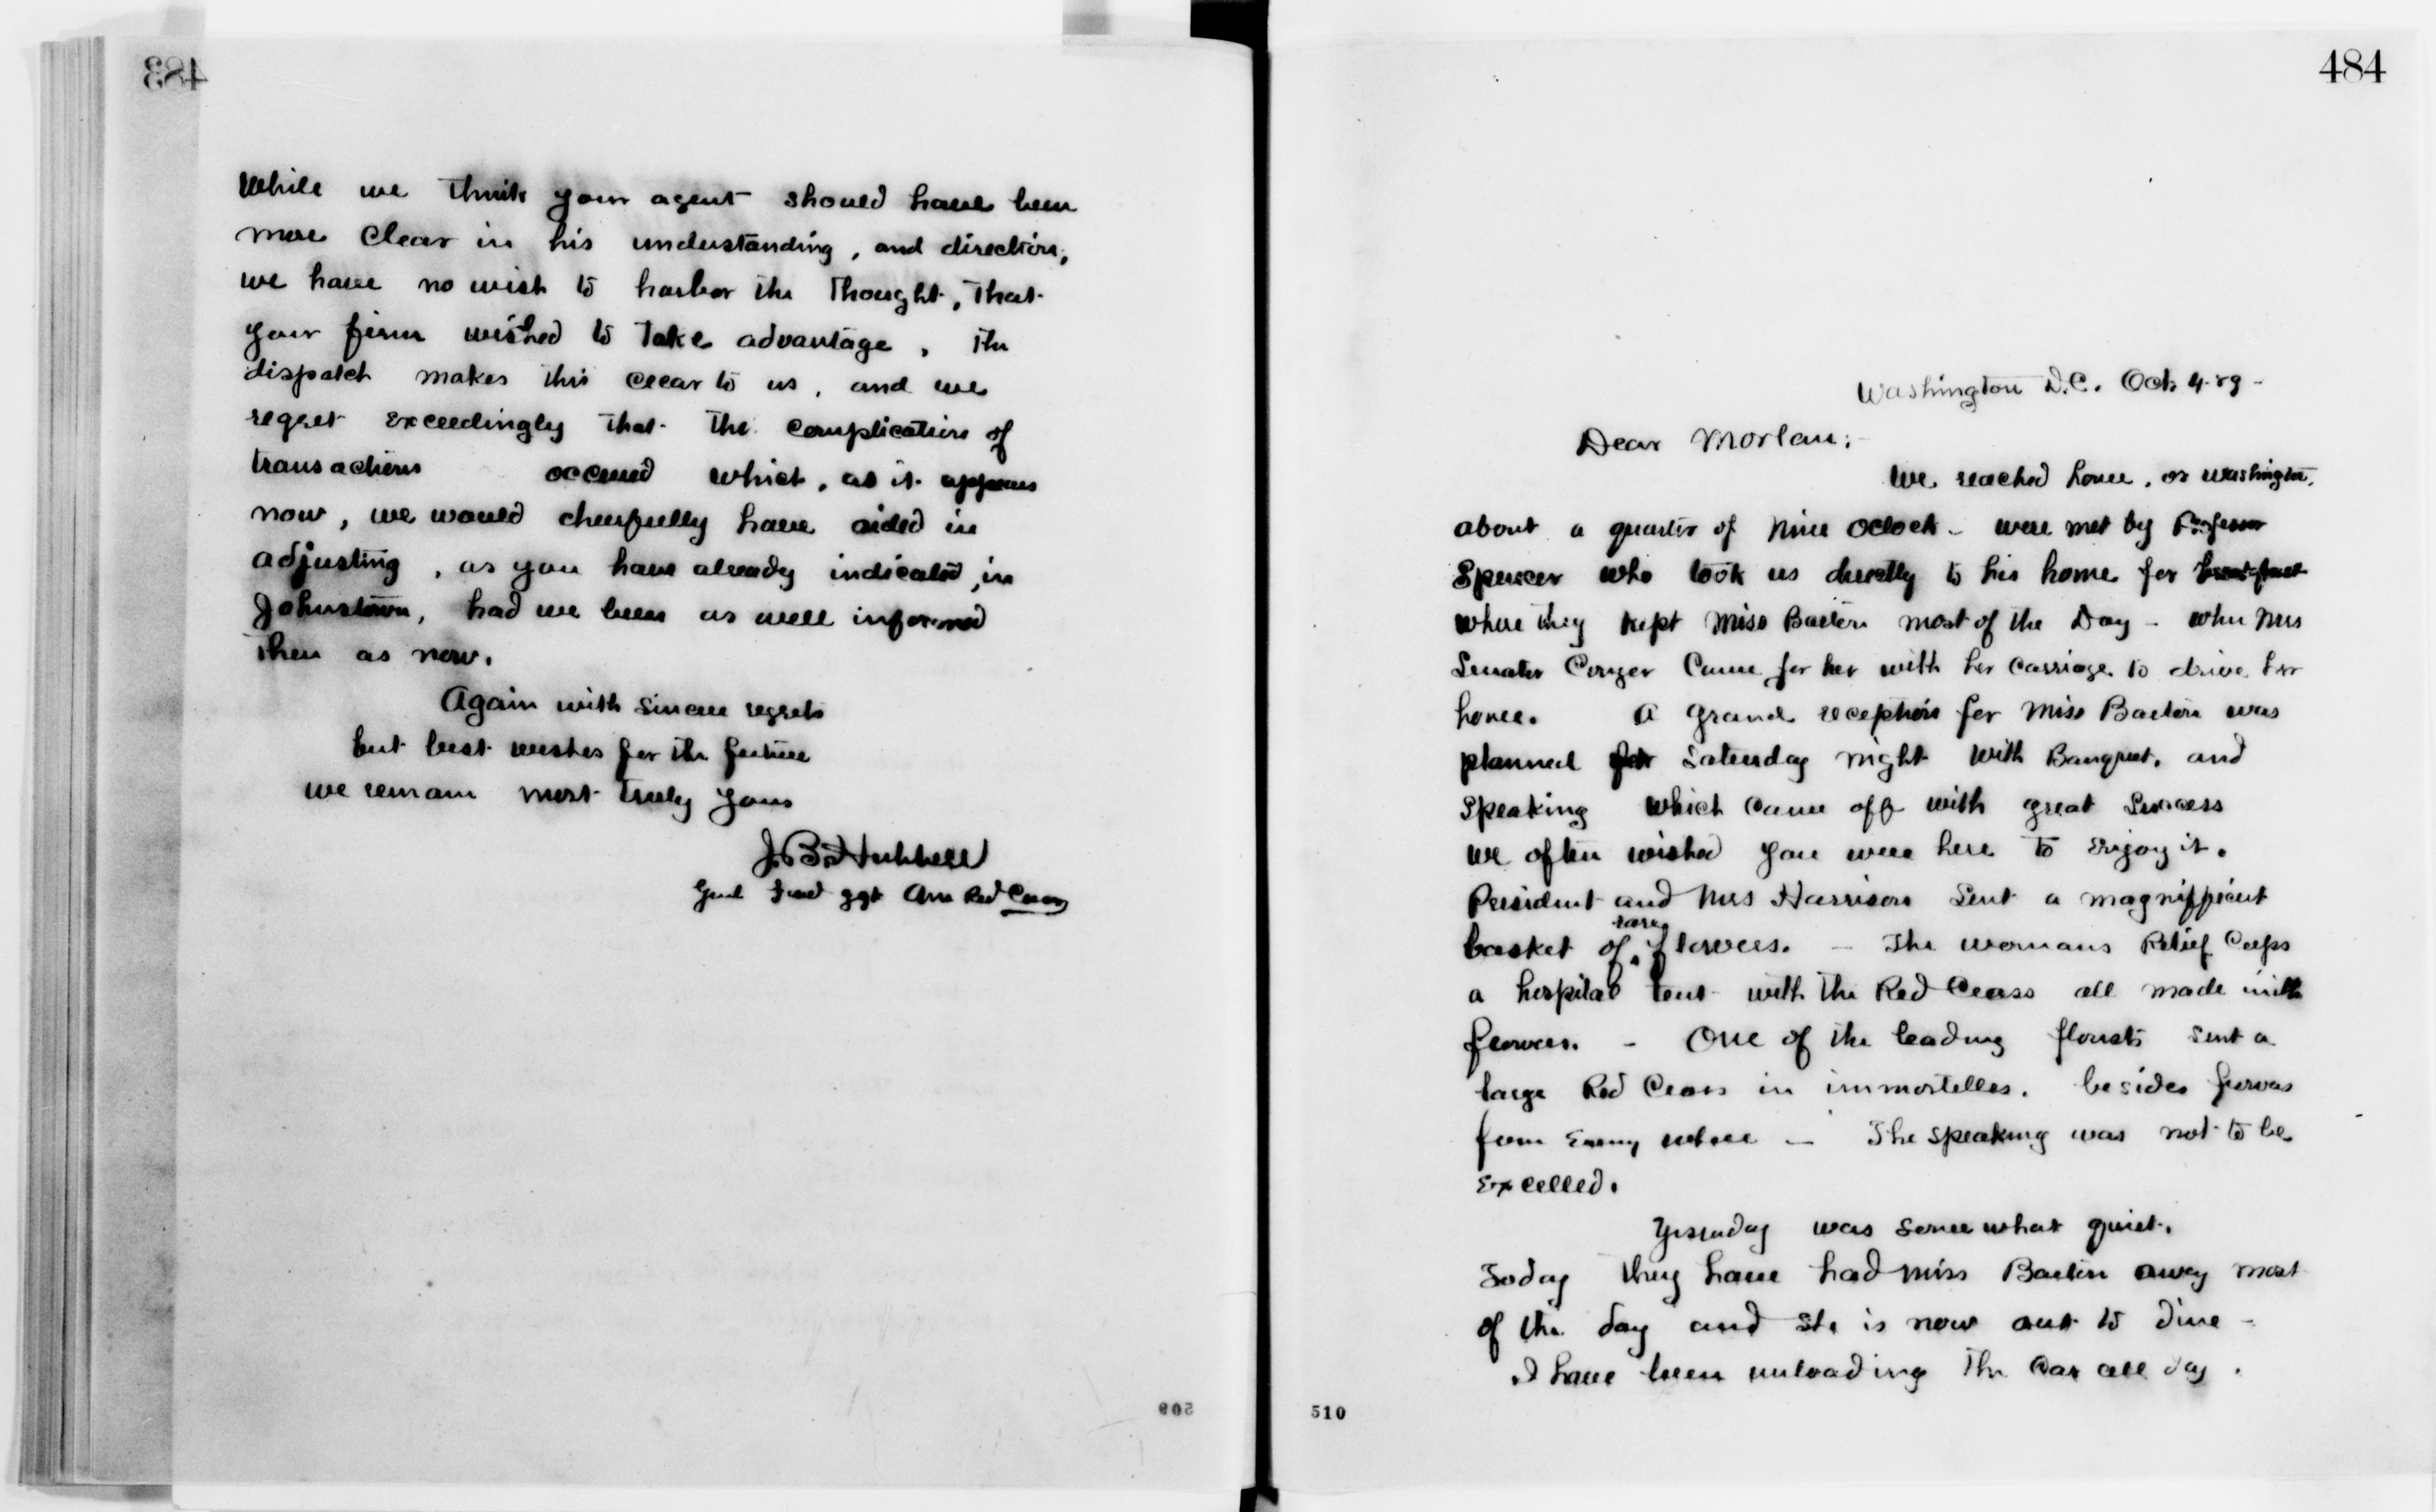 483
While we think your agent should have been
more clear in his understanding, and direction,
we have no wish to harbor the thought, that
your firm wished to take advantage, the
dispatch makes this clear to us, and we
regret exceedingly that the complication of
transactions occured which, as it appears
now, we would cheerfully have aided in
adjusting, as you have already indicated, in
Johnstown, had we been as well informed
then as now.
Again with sincere regrets
but best wishes for the future
we remain most truly yours
J. B. Hubbell
Genl Field Agt Am Red Cross
509
484
Washington D.C. Oct. 4-89-
Dear Morlan:-
We reached home, or Washington,
about a quarter of nine oclock - were met by Professor
Spencer who took us directly to his home for breakfast
where they kept Miss Barton most of the Day - when Mrs
Senator Conger came for her with her carriage to drive her
home. A grand reception for Miss Barton was
planned for Saturday night with Banquet, and
speaking which came off with great success
we often wished you were here to enjoy it.
President and Mrs Harrison sent a magnifficient
basket of rare flowers. - The womans Relief Corps
a hospital tent with the Red Cross all made with
flowers. - One of the leading florists sent a
large Red Cross in immortelles. besides flowers
from every where - The speaking was not to be
excelled.
Yesterday was somewhat quiet.
Today they have had Miss Barton away most
of the day and she is now out to dine -
I have been unloading the car all day.
510